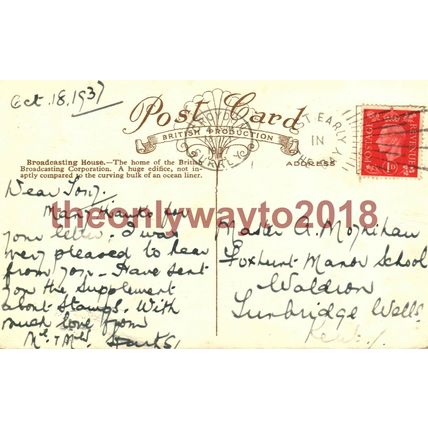 Oct. 18. 1937
Post Card
BRITISH PRODUCTION
Broadcasting House.—The home of the British
Broadcasting Corporation. A huge edifice, not in-
aptly compared to the curving bulk of an ocean liner.
ADDRESS
CROYDON
SURREY
POST EARLY
IN
THE
POSTAGE
REVENUE
1D
theonlywayto2018
Dear Tony.
Many thanks for
your letter. I was
very pleased to hear
from you – Have sent
you the Supplement
about Stamps. With
much love from
Mr. & Mrs.
Master A. Moynihan
Foxhunt Manor School
Waldron
Tunbridge Wells
Kent